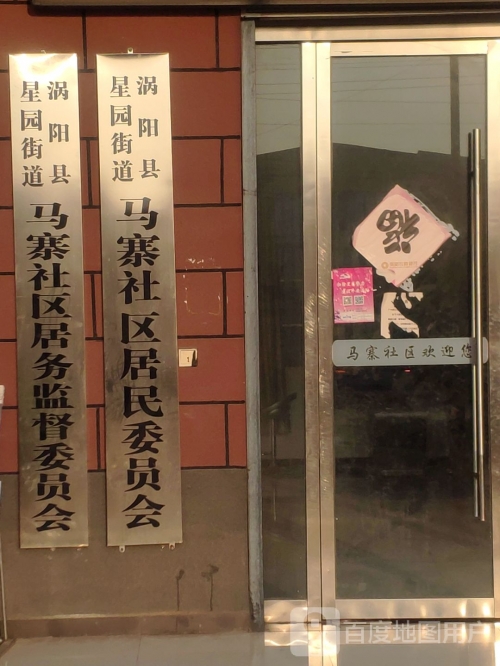 涡阳县
星园街道
马寨社区居务监督委员会
涡阳县
星园街道
马寨社区居民委员会
福
马寨社区欢迎您
百度地图用户